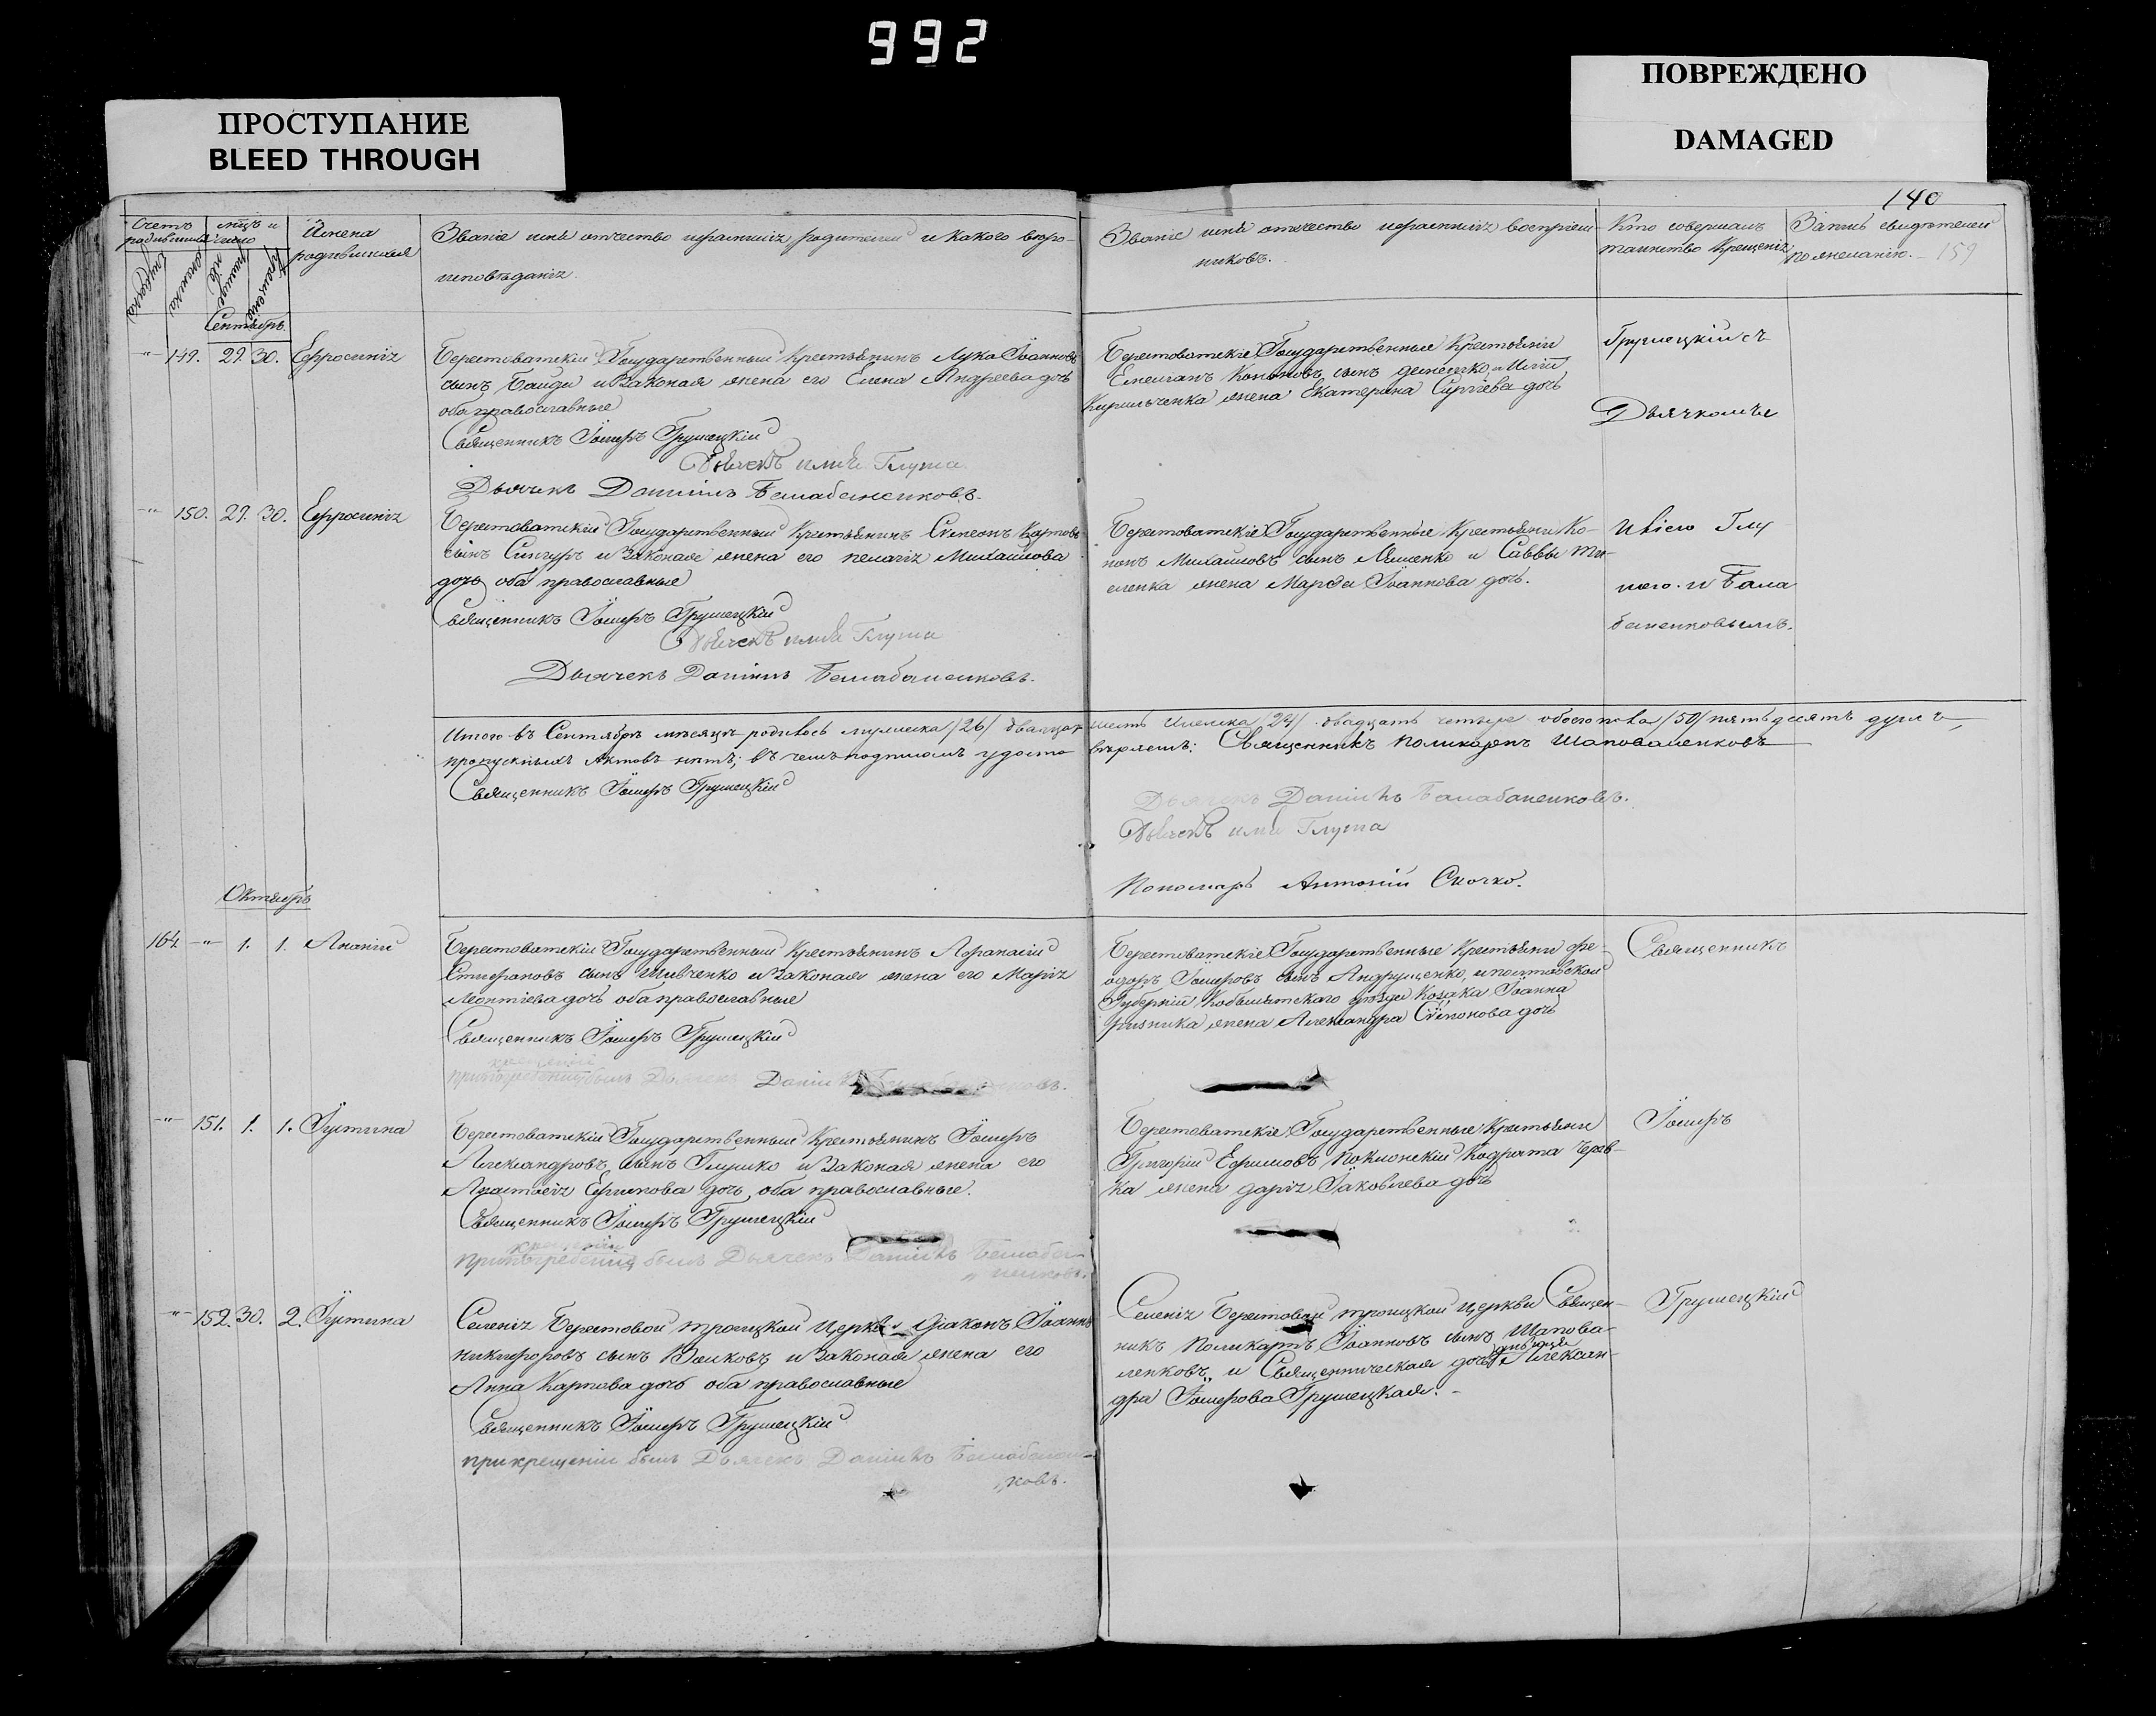 992
ПРОСТУПАНИЕ
BLEED THROUGH
ПОВРЕЖДЕНО
DAMAGED
140
159
Счетъ родившихся
мѣсяцъ и число
Имена
родившихся
Званіе имя отчество
родителей и какого вѣро-
исповѣданія.
Званіе имя отчество
воспріем-
никовъ.
Кто совершалъ
таинство Крещенія
Запись свидѣтелей
по желанію.
Сентябрь.
149. 29. 30. Ефросинія
Берестоватскій Государственный Крестьянинъ Лука Іоанновъ
сынъ Байда и Законая жена его Елена Андреева дочь
оба православные
Священникъ Іосифъ Грушецкій
Дьячекъ Глуша
Дьячекъ Даніилъ Балабаненковъ.
Берестоватскіе Государственные Крестьяни
Емеліанъ Кононовъ сынъ
жена Екатерина Сергіева дочь
Грушецкій съ
Дьячкомъ
150. 29. 30. Ефросинія
Берестоватскій Государственный Крестьянинъ Симеонъ Карповъ
сынъ Сингуръ и Законая жена его Пелагія Михайлова
дочь оба православные
Священникъ Іосифъ Грушецкій
Дьячекъ Глуша
Дьячекъ Даніилъ Балабаненковъ.
Берестоватскіе Государственные Крестьяни Ко-
нонъ Михайловъ сынъ Ляшенко и Саввы
жена Марфа Іоаннова дочь.
Глу
шею. и Бала
баненковымъ.
Итого въ Сентябрѣ мѣсяцѣ родилось мужеска /26/ двадцать шесть и женска /24/ двадцать четыре обоего пола /50/ пятьдесятъ душъ,
пропускныхъ Актовъ нѣтъ; въ чемъ подписомъ удосто вѣряемъ: Священникъ Поликарпъ Шаповаленковъ
Священникъ Іосифъ Грушецкій
Дьячекъ Даніилъ Балабаненковъ.
Дьячекъ Глуша
Пономарь Антоній Скочко.
Октябрь
164. 1. 1. Ананій
Берестоватскій Государственный Крестьянинъ Афанасій
Стефановъ сынъ Шевченко и Законая жена его Марія
Леонтіева дочь оба православные
Священникъ Іосифъ Грушецкій
крещеніи
при былъ Дьячекъ Даніилъ
Берестоватскіе Государственные Крестьяни Фе-
одоръ Іосифовъ сынъ Андрущенко, и Полтавской
Губерніи, Кобыляцкаго уѣзда Козака Іоанна
жена Александра Симонова дочь
Священникъ
151. 1. 1. Іустина
Берестоватскій Государственный Крестьянинъ Іосифъ
Александровъ сынъ Глушко и Законая жена его
Анастасія Ефимова дочь, оба православные.
Священникъ Іосифъ Грушецкій
крещеніи
при погребеніи былъ Дьячекъ Даніилъ Балаба-
ненковъ.
Берестоватскіе Государственные Крестьяни
Григорій Ефимовъ Поклонскій Кодрата Черв-
ка жена Дарія Іаковлева дочь
Іосифъ
152. 30. 2. Іустина
Селенія Берестовой Троицкой Церкви Діаконъ Іоаннъ
Никифоровъ сынъ Волковъ и Законая жена его
Анна Карпова дочь оба православные
Священникъ Іосифъ Грушецкій
при крещеніи былъ Дьячекъ Даніилъ Балабанен-
ковъ.
Селенія Берестовой Троицкой Церкви Священ-
никъ Поликарпъ Іоанновъ сынъ Шапова-
ленковъ, и Священническая дочь дѣвица Алексан-
дра Іосифова Грушецкая.
Грушецкій